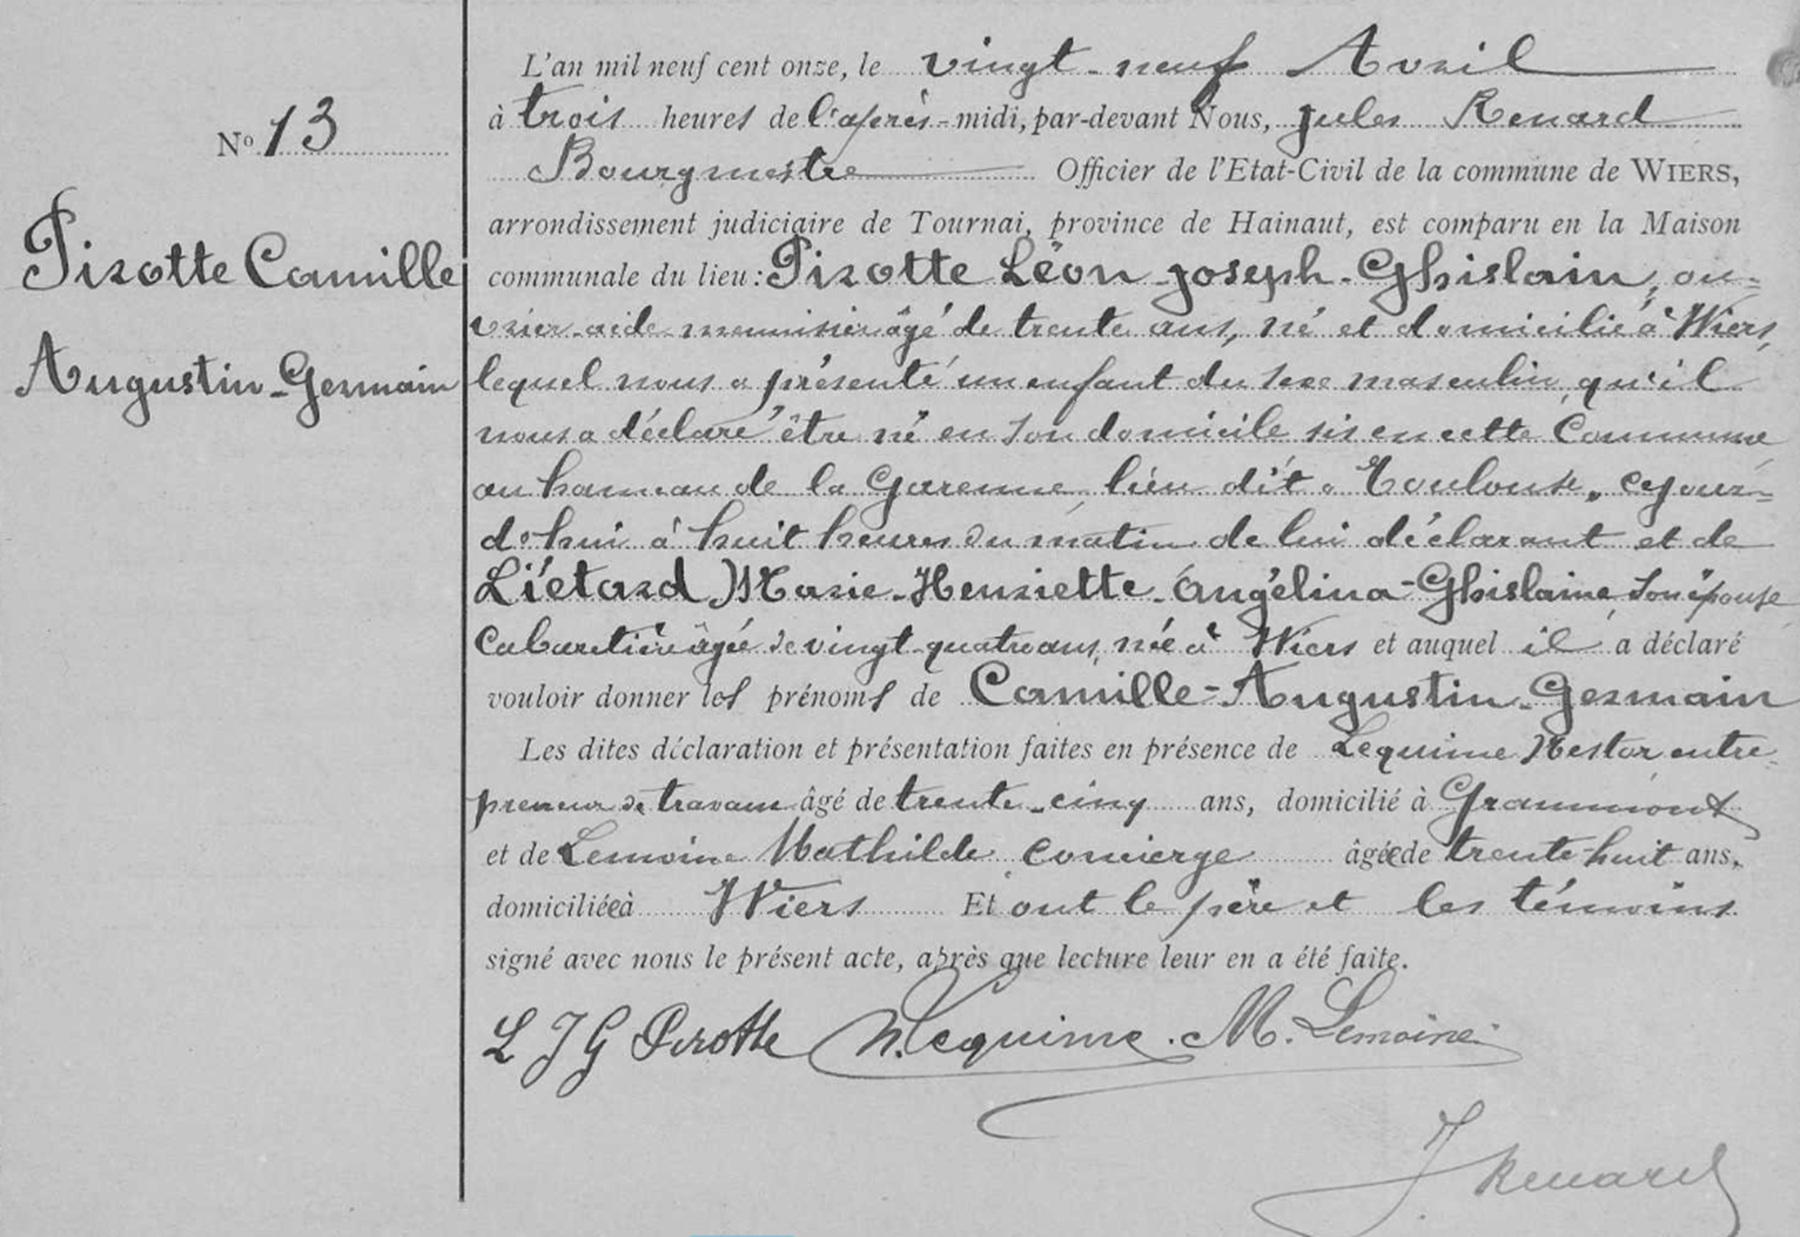 N° 13
Pirotte Camille
Augustin-Germain
L'an mil neuf cent onze, le vingt-neuf Avril
à trois heures de l'après-midi, par-devant Nous, Jules Renard
Bourgmestre Officier de l'Etat-Civil de la commune de WIERS,
arrondissement judiciaire de Tournai, province de Hainaut, est comparu en la Maison
communale du lieu : Pirotte Léon-Joseph-Ghislain, ou=
vrier-aide-menuisier âgé de trente ans, né et domicilié à Wiers,
lequel nous a présenté un enfant du sexe masculin, qu'il
nous a déclaré être né en son domicile sis en cette Commune
au hameau de la Garenne, lieu dit "Toulouse", cejour=
d'hui à huit heures du matin de lui déclarant et de
Liétard Marie-Henriette-Angélina-Ghislaine, son épouse
Cabaretière âgée de vingt-quatre ans, née à Wiers et auquel il a déclaré
vouloir donner les prénoms de Camille-Augustin-Germain
Les dites déclaration et présentation faites en présence de Lequime Nestor entre-
preneur de travaux âgé de trente-cinq ans, domicilié à Grammont
et de Lemoine Mathilde concierge âgée de trente-huit ans,
domiciliée à Wiers Et ont le père et les témoins
signé avec nous le présent acte, après que lecture leur en a été faite.
L J G Pirotte N. Lequime. M. Lemoine.
J Renard